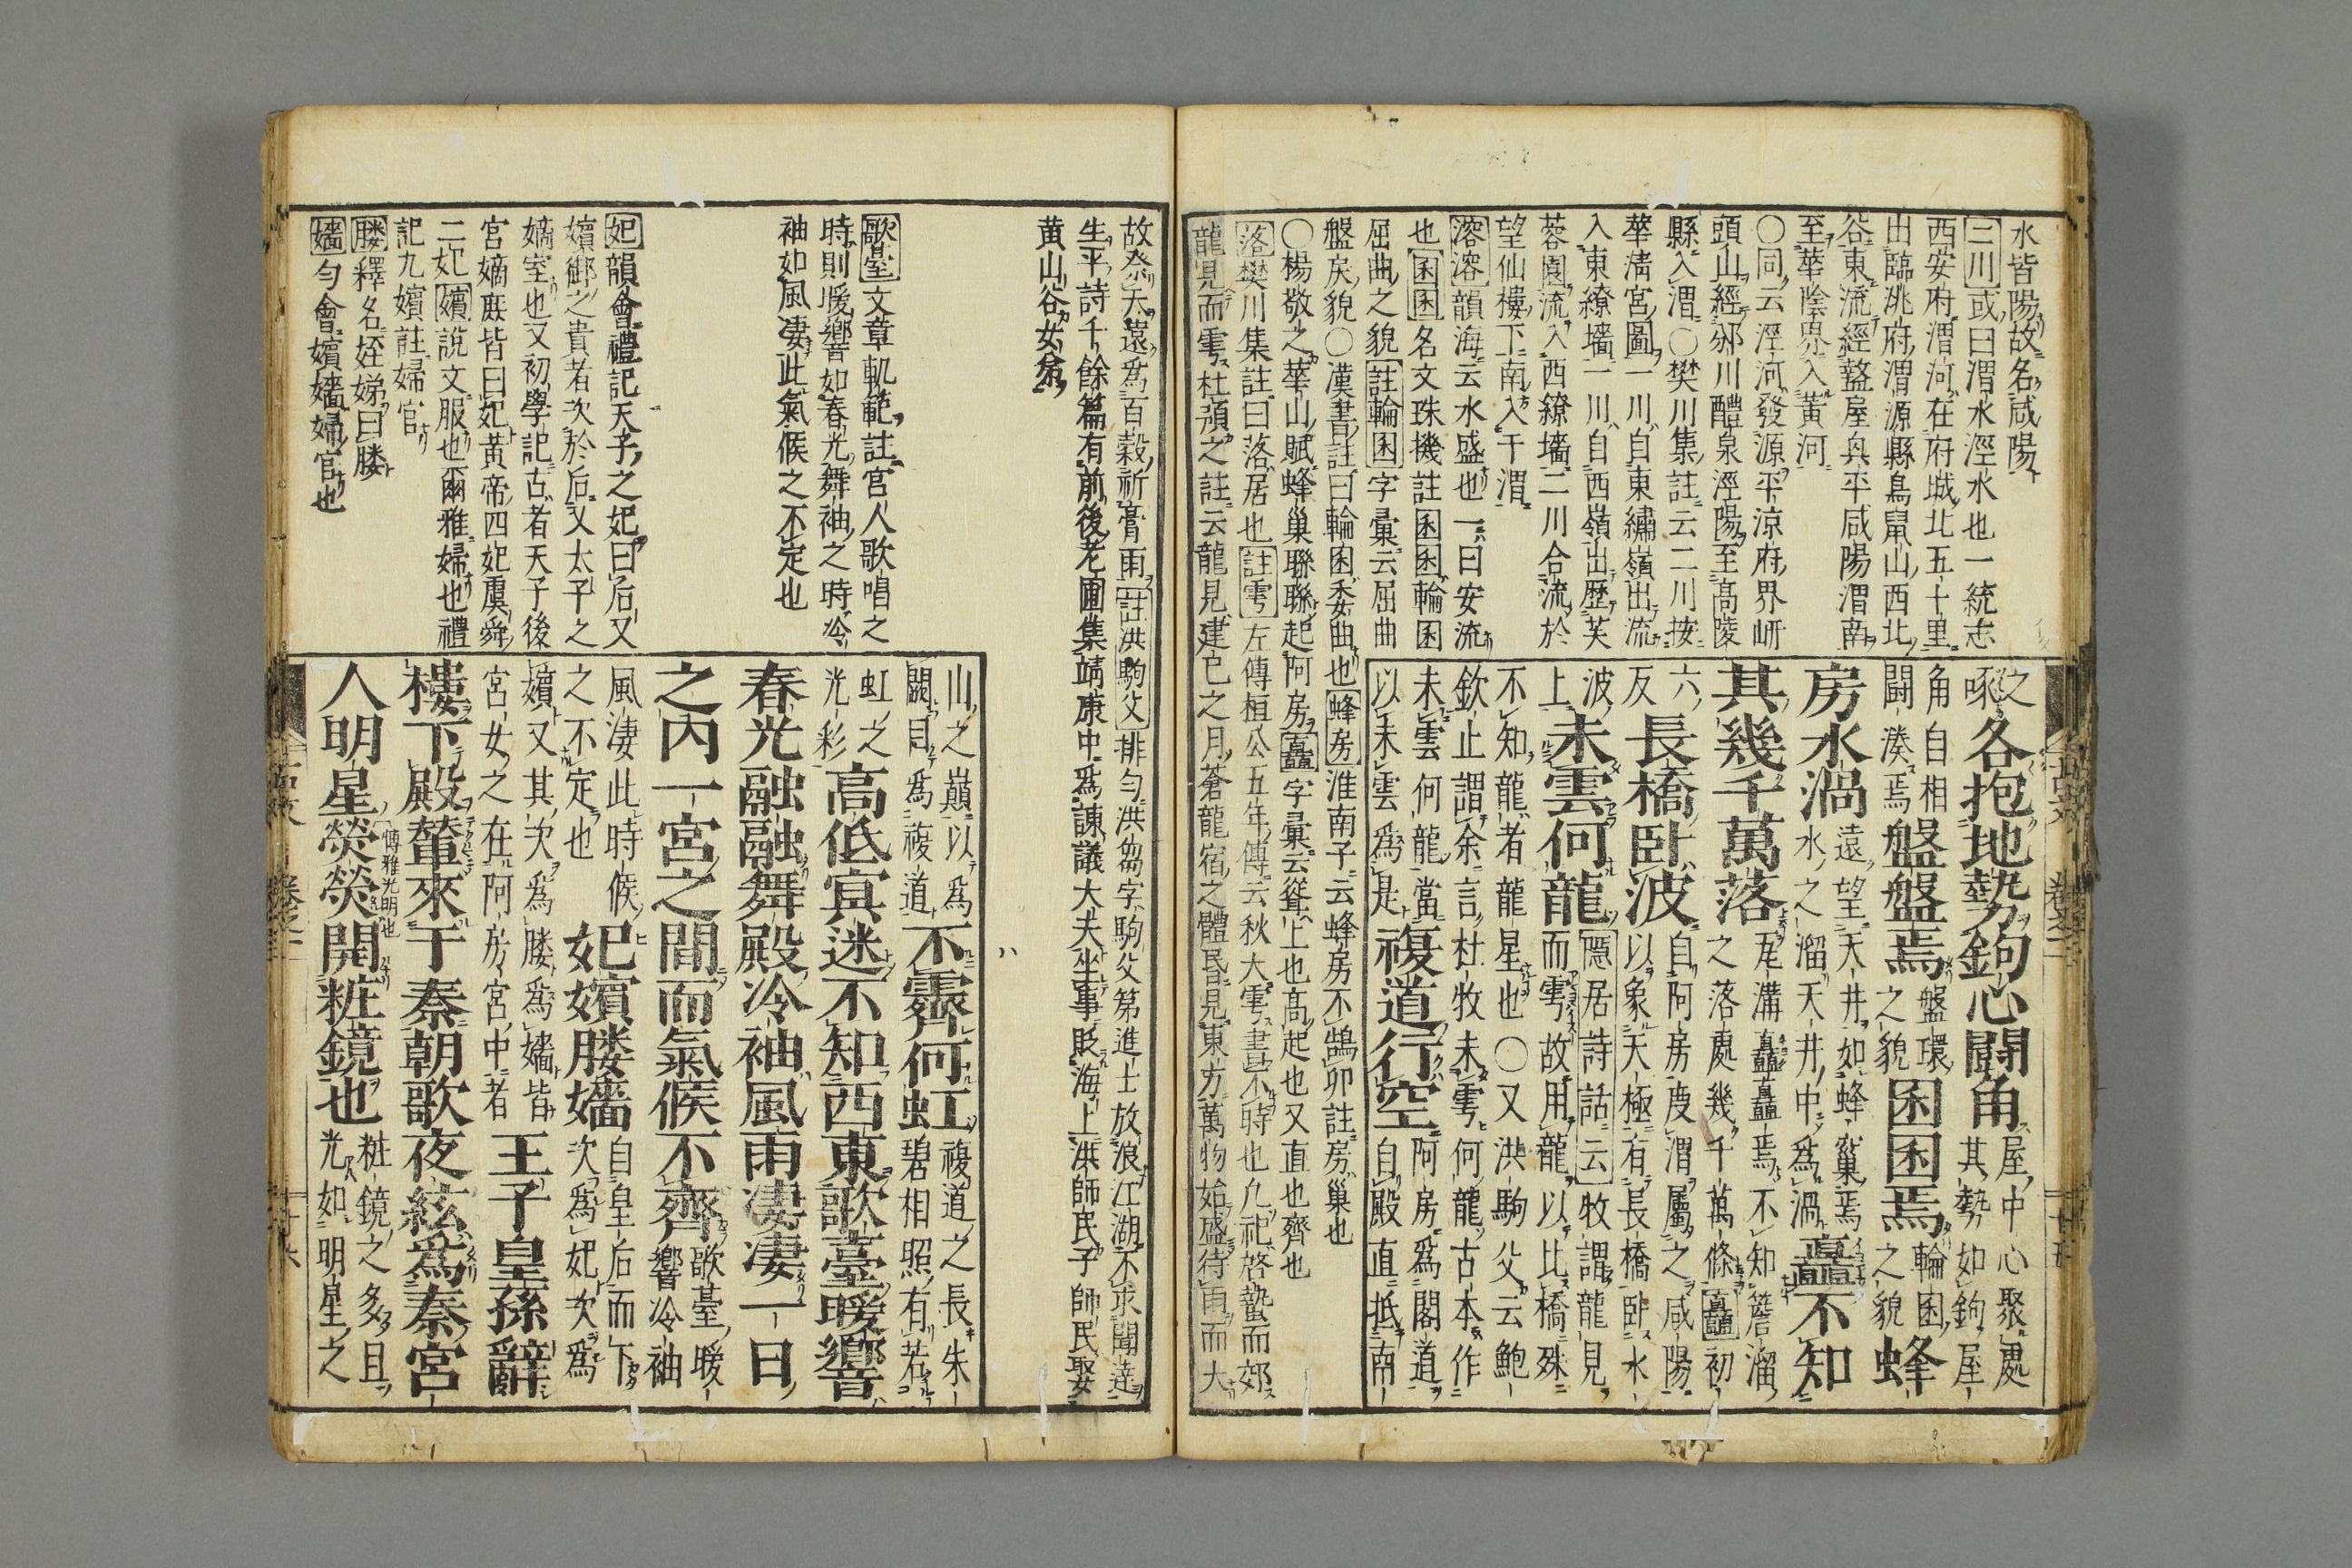 水皆陽故名咸陽
三川或曰渭水涇水也一統志
西安府渭河在府城北五十里
出臨洮府渭源縣鳥鼠山西北
谷東流經盩厔興平咸陽渭南
至華陰界入黃河
○同云涇河發源平涼府界岍
頭山經邠川醴泉涇陽至高陵
縣入渭○樊川集註云二川按
華淸宮圖一川自東繡嶺出流
入東繚墻一川自西嶺出歷芙
蓉園流入西繚墻二川合流於
望仙樓下南入于渭
溶溶韻海云水盛也一曰安流
也囷囷名文珠機註囷囷輪囷
屈曲之貌註輪囷字彙云屈曲
盤戾貌○漢書註曰輪囷委曲也蜂房淮南子云蜂房不鵠卵註房巢也
○楊敬之華山賦蜂巢聯聯起阿房矗字彙云聳上也高起也又直也齊也
落樊川集註曰落居也註雩左傳桓公五年傳云秋大雩書不時也凡祀啓蟄而郊
龍見而雩杜預之註云龍見建巳之月蒼龍宿之體昏見東方萬物始盛待雨而大
之
啄各抱地勢鉤心鬪角屋中心聚處
其勢如鉤屋
角自相
鬪湊焉盤盤焉盤環
之貌囷囷焉輪囷
之貌蜂
房水渦遠望天井如蜂巢焉
水之溜天井中爲渦矗不知
其幾千萬落瓦溝矗矗焉不知簷溜
之落處幾千萬條矗初
六自阿房度渭屬之咸陽
反長橋臥波以象天極有長橋臥水
波隱居詩話云牧謂龍見
上未雲何龍而雩故用龍以比橋殊
不知龍者龍星也○又洪駒父云鮑
欽止謂余言杜牧未雩何龍古本作
未雲何龍當
以未雲爲是複道行空阿房爲閣道
自殿直抵南
故祭天遠爲百穀祈膏雨註洪駒父排勻洪芻字駒父第進士放浪江湖不求聞達
生平詩千餘篇有前後老圃集靖康中爲諫議大夫坐事貶海上洪師民子師民娶
黃山谷女弟
歌臺文章軌範註宮人歌唱之
時則暖響如春光舞袖之時冷
袖如風凄此氣候之不定也
妃韻會禮記天子之妃曰后又
嬪御之貴者次於后又太子之
嫡室也又初學記古者天子後
宮嫡庶皆曰妃黃帝四妃虞舜
二妃嬪說文服也爾雅婦也禮
記九嬪註婦官
媵釋名姪娣曰媵
嬙勻會嬪嬙婦官也
山之巔以爲
闕自爲複道不霽何虹複道之長朱
碧相照有若
虹之
光彩高低冥迷不知西東歌臺暖響
春光融融舞殿冷袖風雨凄凄一日
之內一宮之間而氣候不齊歌臺暖
響冷袖
風淒此時候
之不定也妃嬪媵嬙自皇后而下
次爲妃次爲
嬪又其次爲媵爲嬙皆
宮女之在阿房宮中者王子皇孫辭
樓下殿輦來于秦朝歌夜絃爲秦宮
人明星熒熒博雅光明也開粧鏡也粧鏡之多且
光如明星之